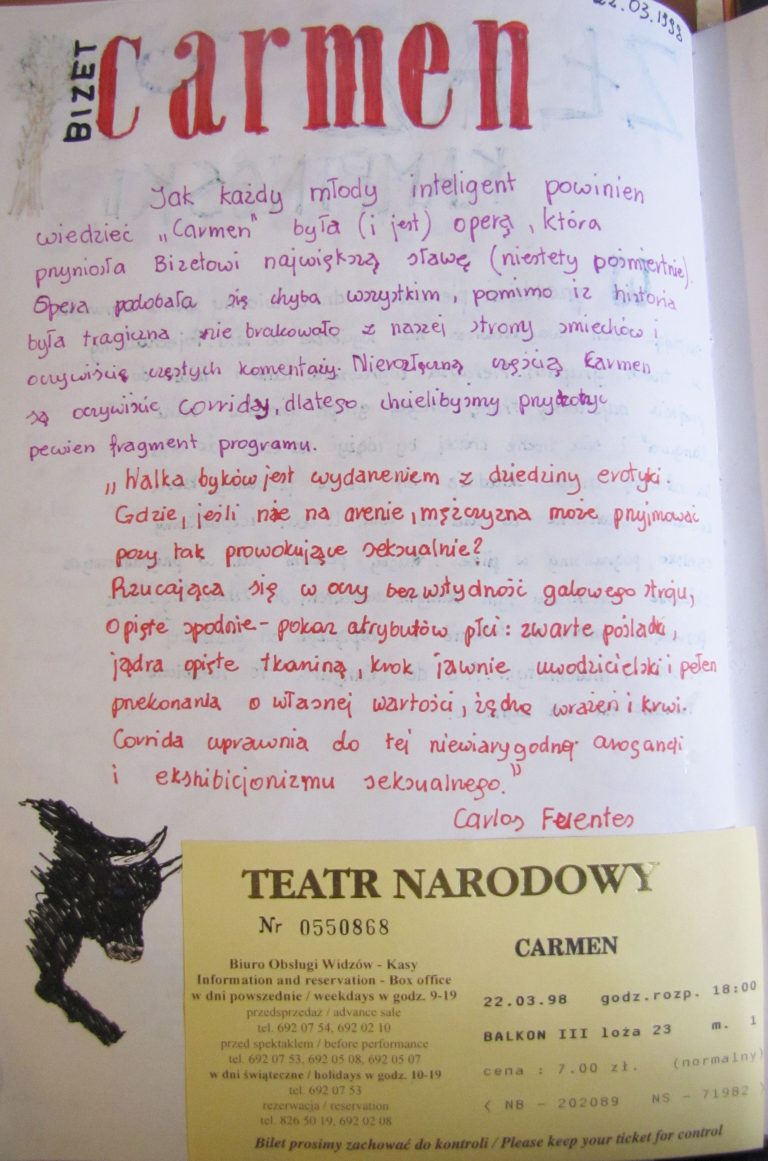 22.03.1998
BIZET
carmen
Jak każdy młody inteligent powinien
wiedzieć „Carmen" była (i jest) operą, która
przyniosła Bizetowi największą sławę (niestety pośmiertnie).
Opera podobała się chyba wszystkim, pomimo iż historia
była tragiczna nie brakowało z naszej strony śmiechów i
oczywiście częstych komentaży. Nierozłączną częścią Carmen
są oczywiście corridy, dlatego chcielibyśmy przytoczyć
pewien fragment programu.
„Walka byków jest wydaneniem z dziedziny erotyki.
Gdzie, jeśli nie na arenie, mężczyzna może przyjmować
pozy tak prowokujące seksualnie?
Rzucająca się w oczy bezwstydność galowego stroju,
opięte spodnie - pokaz atrybutów płci: zwarte pośladki,
jądra opięte tkaniną, krok jawnie uwodzicielski i pełen
przekonania o własnej wartości, żądny wrażeń i krwi.
Corrida uprawnia do tej niewiarygodnej arogancji
i ekshibicjonizmu seksualnego."
Carlos Fuentes
TEATR NARODOWY
Nr 0550868
CARMEN
Biuro Obsługi Widzów - Kasy
Information and reservation - Box office
w dni powszednie / weekdays w godz. 9-19
przedsprzedaż / advance sale
tel. 692 07 54, 692 02 10
przed spektaklem / before performance
tel. 692 07 53, 692 05 08, 692 05 07
w dni świąteczne / holidays w godz. 10-19
tel. 692 07 53
rezerwacja / reservation
tel. 826 50 19, 692 02 08
22.03.98 godz.rozp. 18:00
BALKON III loża 23 m. 1
cena : 7.00 zł. (normalny)
( NB - 202089 NS - 71982 )
Bilet prosimy zachować do kontroli / Please keep your ticket for control